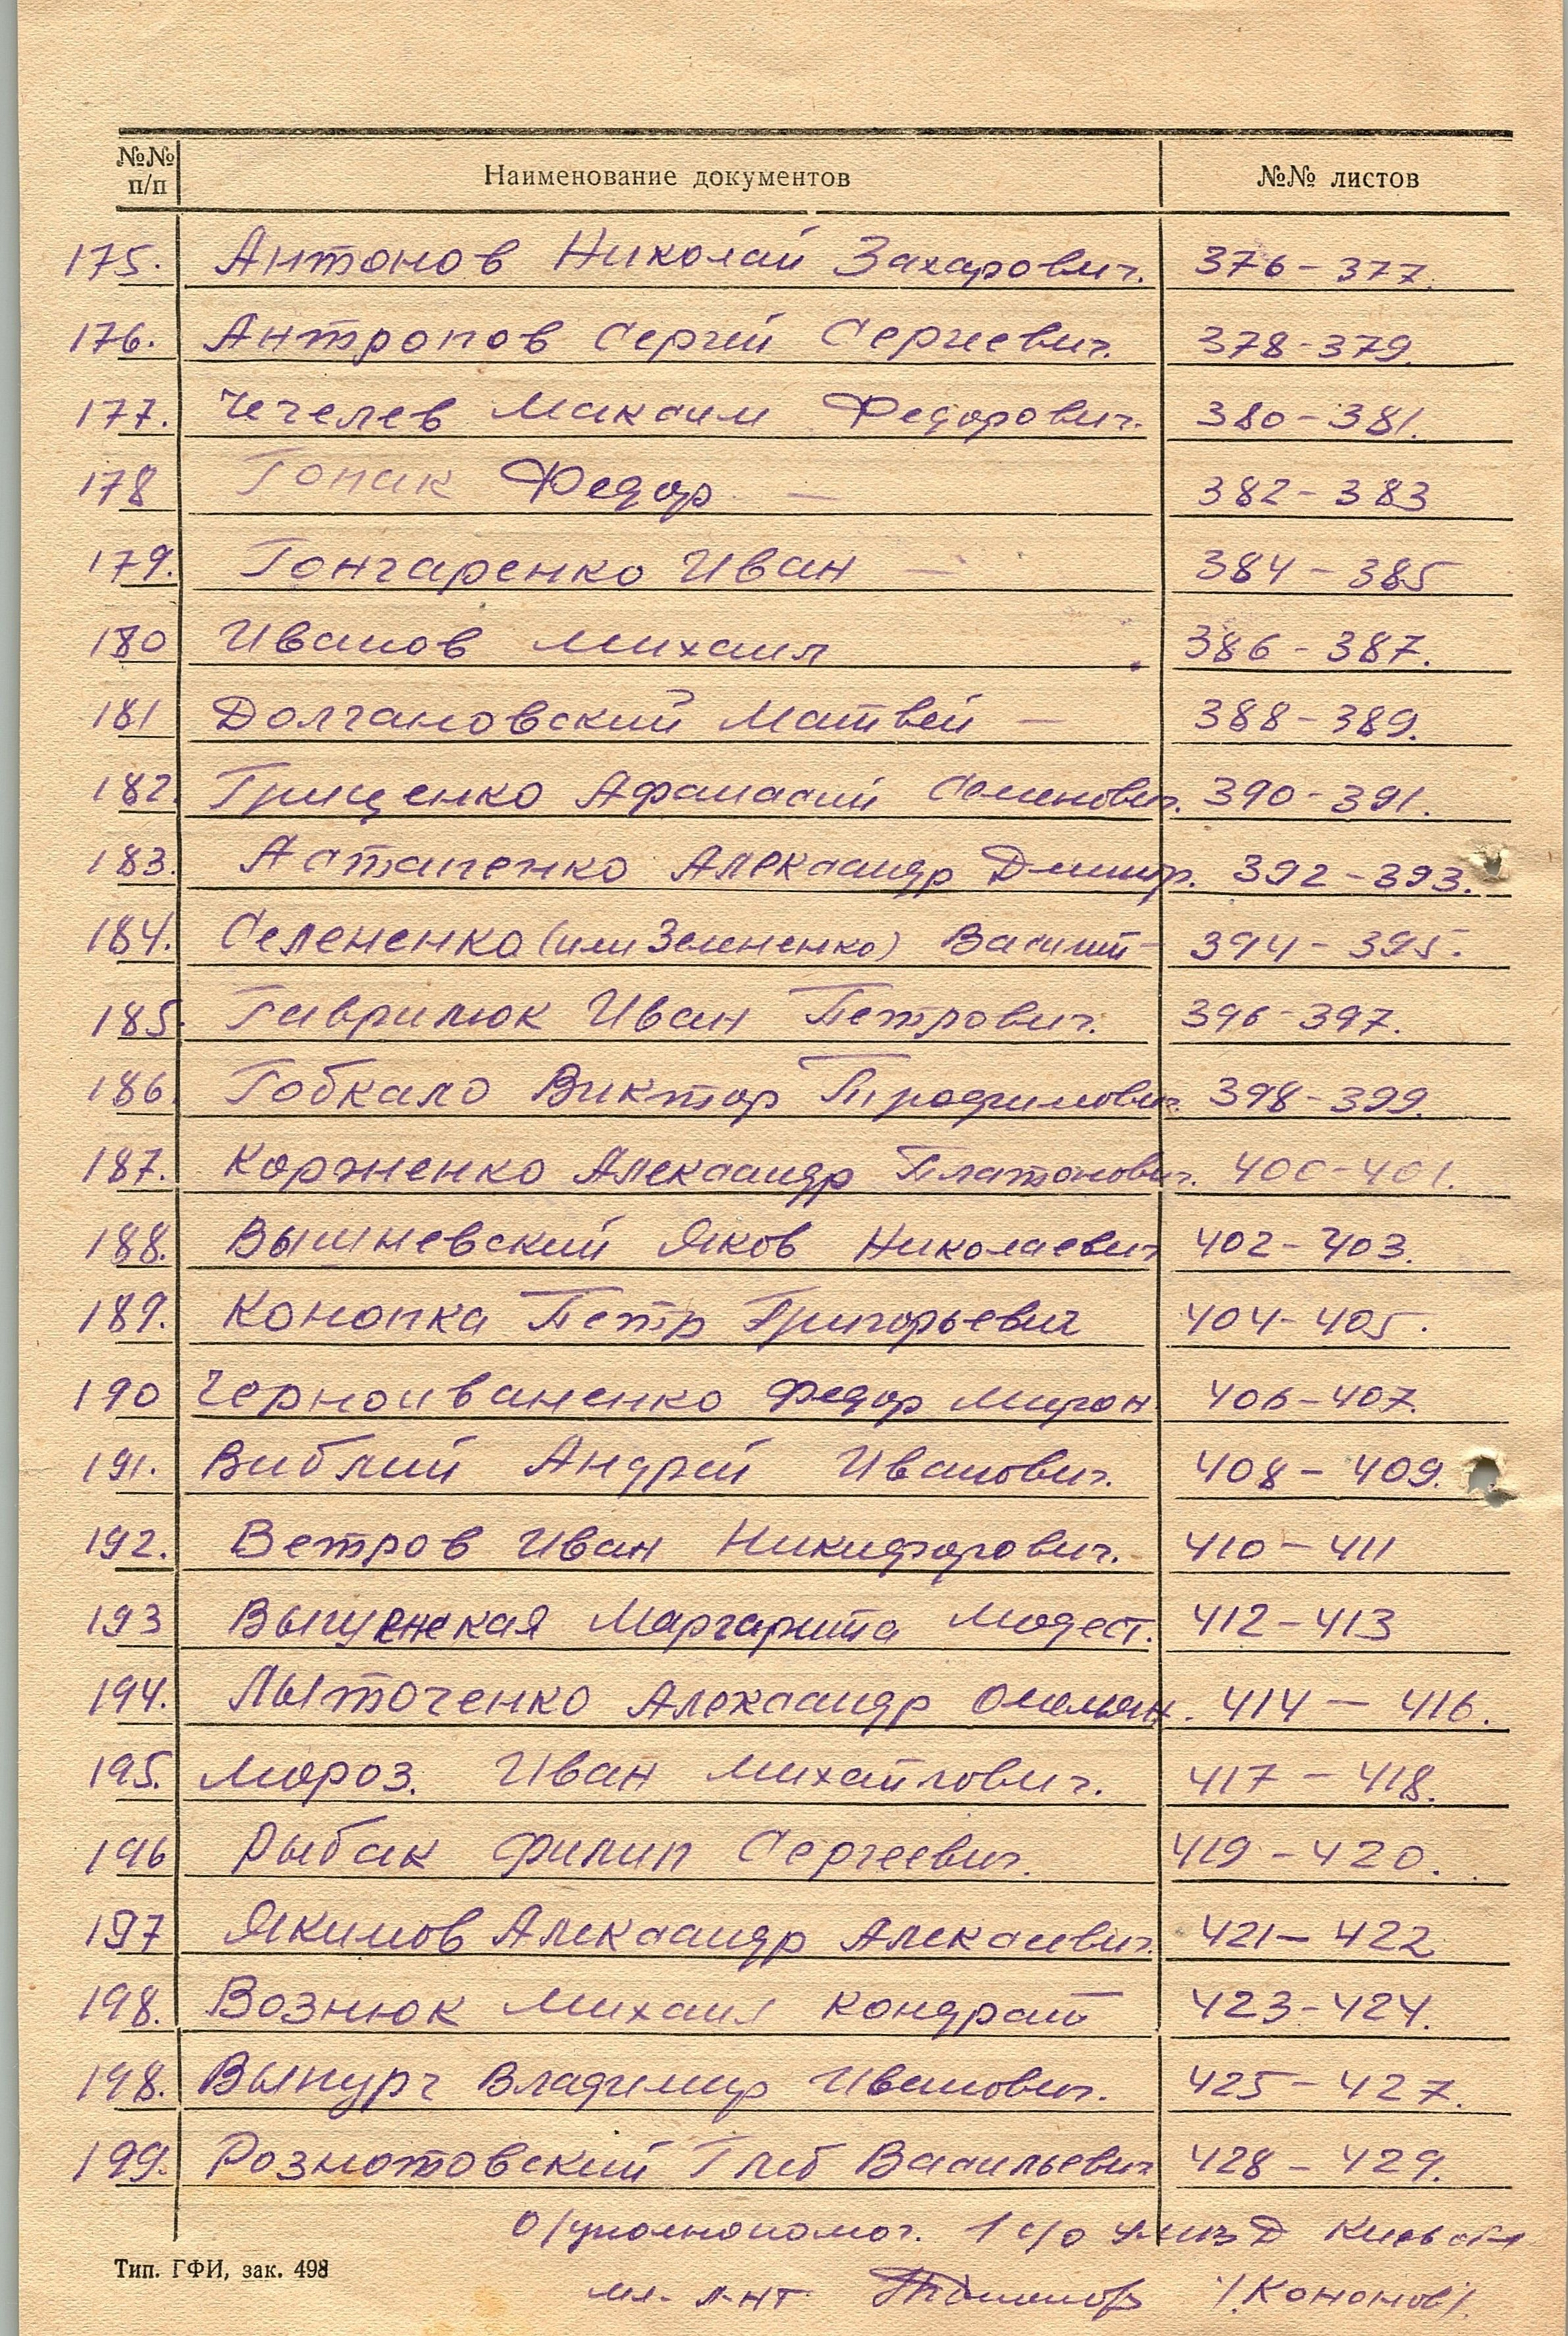 №№ п/п Наименование документов №№ листов
175. Антонов Николай Захарович. 376-377.
176. Антропов Сергей Сергеевич. 378-379.
177. Чечелев Максим Федорович. 380-381.
178 Гопак Федор — 382-383
179. Гончаренко Иван — 384-385
180 Иванов Михаил 386-387.
181 Долгановский Матвей — 388-389.
182. Грищенко Афанасий Семенович. 390-391.
183. Астапенко Александр Дмитр. 392-393.
184. Селененко (или Зелененко) Василий - 394-395.
185. Гаврилюк Иван Петрович. 396-397.
186. Гобкало Виктор Трофимович. 398-399.
187. Корженко Александр Платонович. 400-401.
188. Вышневский Яков Николаевич 402-403.
189. Конопка Петр Григорьевич 404-405.
190 Черноиваненко Федор Мирон 406-407.
191. Библий Андрей Иванович. 408-409.
192. Ветров Иван Никифорович. 410-411
193 Маргарита Модест. 412-413
194. Лыточенко Александр Омельян. 414-416.
195. Мороз. Иван Михайлович. 417-418.
196 Рыбак Филип Сергеевич. 419-420.
197 Якимов Александр Алексеевич. 421-422
198. Вознюк Михаил Кондрат 423-424.
198. Владимир Иванович. 425-427.
199. Глеб Васильевич 428-429.
О/уполномоч. 1 с/о
Тип. ГФИ, зак. 498
мл. л-нт /Кононов/.